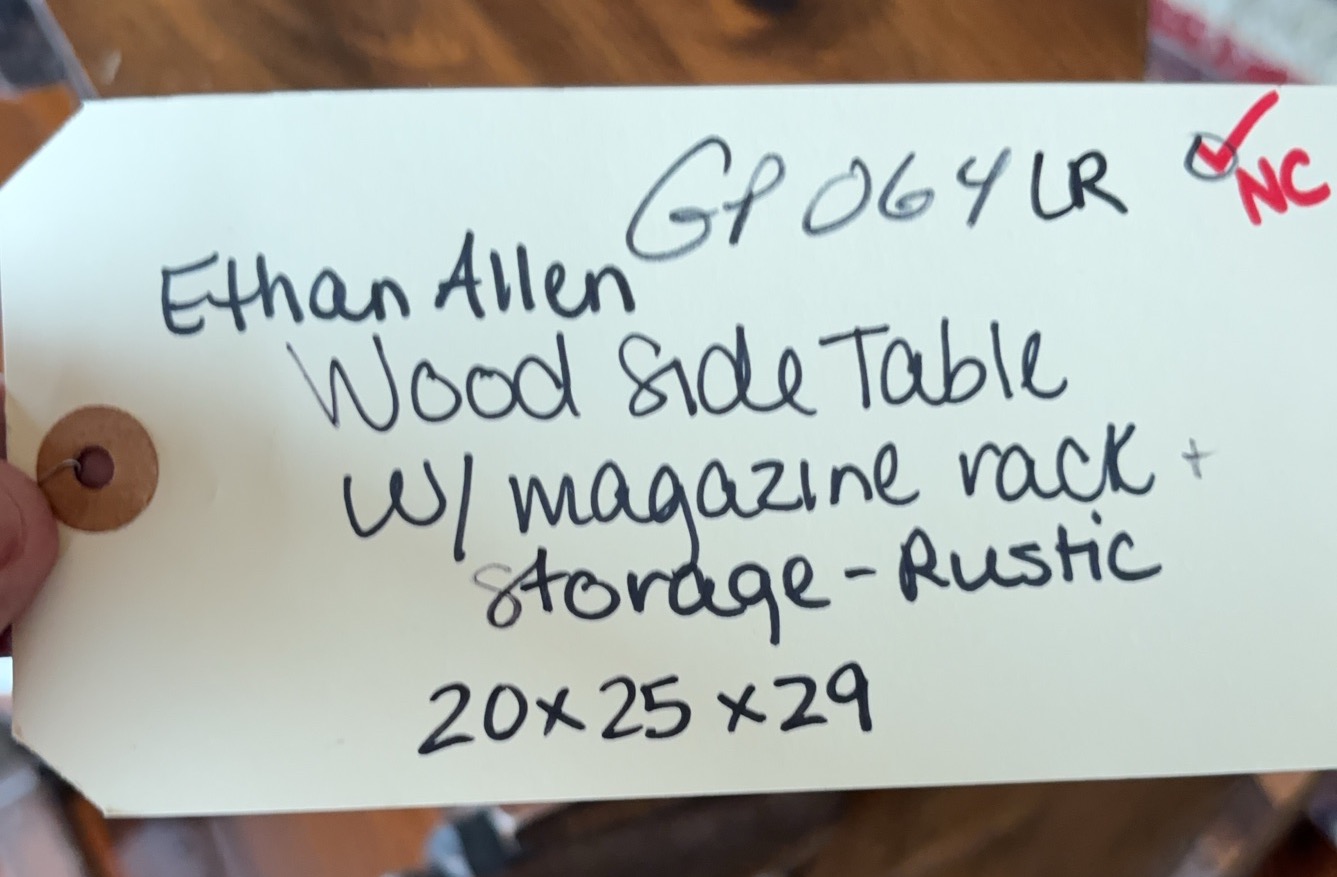 GP064LR
NC
Ethan Allen
Wood Side Table
W/ magazine rack +
storage - Rustic
20x25x29